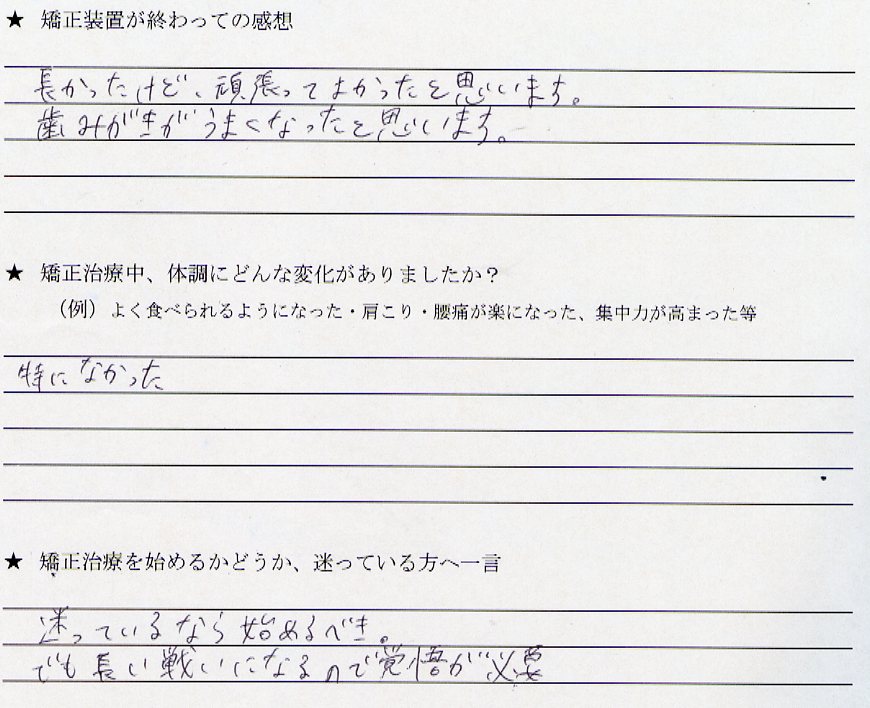 ★ 矯正装置が終わっての感想
長かったけど、頑張ってよかったと思います。
歯みがきがうまくなったと思います。
★ 矯正治療中、体調にどんな変化がありましたか？
（例）よく食べられるようになった・肩こり・腰痛が楽になった、集中力が高まった等
特になかった
★ 矯正治療を始めるかどうか、迷っている方へ一言
迷っているなら始めるべき。
でも長い戦いになるので覚悟が必要